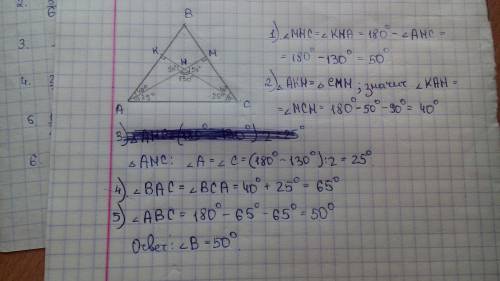 2.
6
3.
4.
5.
6.
B
K
M
H
50°
50°
130°
40°
25°
25°
A
C
1) ∠MHC = ∠KHA = 180° - ∠AHC =
= 180° - 130° = 50°
2) △AKH = △CMH; значит ∠KAH =
= ∠MCH = 180° - 50° - 90° = 40°
3)
△AHC: ∠A = ∠C = (180° - 130°) : 2 = 25°
4) ∠BAC = ∠BCA = 40° + 25° = 65°
5) ∠ABC = 180° - 65° - 65° = 50°
Ответ: ∠B = 50°.